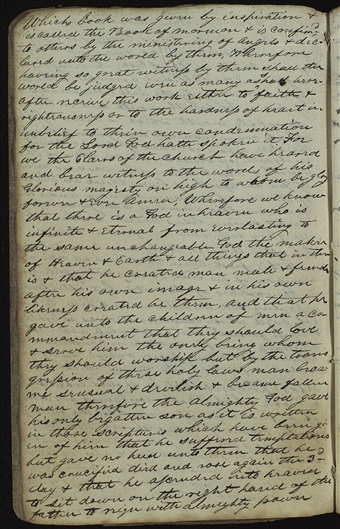 Which book was given by inspiration &
is called the Book of mormon & is confirmed
to others by the ministering of Angels & de
lard unto the world by them, Wherefore
having so great witness by them shall the
world be judged even as many as shall here
after receive this work either to faith &
rightousness or to the hardness of heart in
unbelief to their own condemnation
for the Lord God hath spoken it For
we the Elders of the church have heard
and bear witness to the words of his
Glorious majesty on high to whom be glory
forever & Ever Amen, Wherefore we know
that there is a God in heaven who is
infinite & Eternal from everlasting to
the same unchangeable God the maker
of Heaven & Earth & all things that in them
is & that he created man male & female
after his own image & in his own
likeness created he them, and that he
gave unto the children of men a co
mmandment that they should love
& serve him the only being whom
they should worship but by the trans
gression of these holy laws man beca
me sensual & devilish & became fallen
man therefore the Almighty God gave
his only begotten son as it is written
in those scriptures which have been gi
en of him that he suffered temptations
but gave no heed unto them that he
was crucified died and rose again the 3
day & that he ascended into heaven
to sit down on the right hand of the
father to reign with almighty power